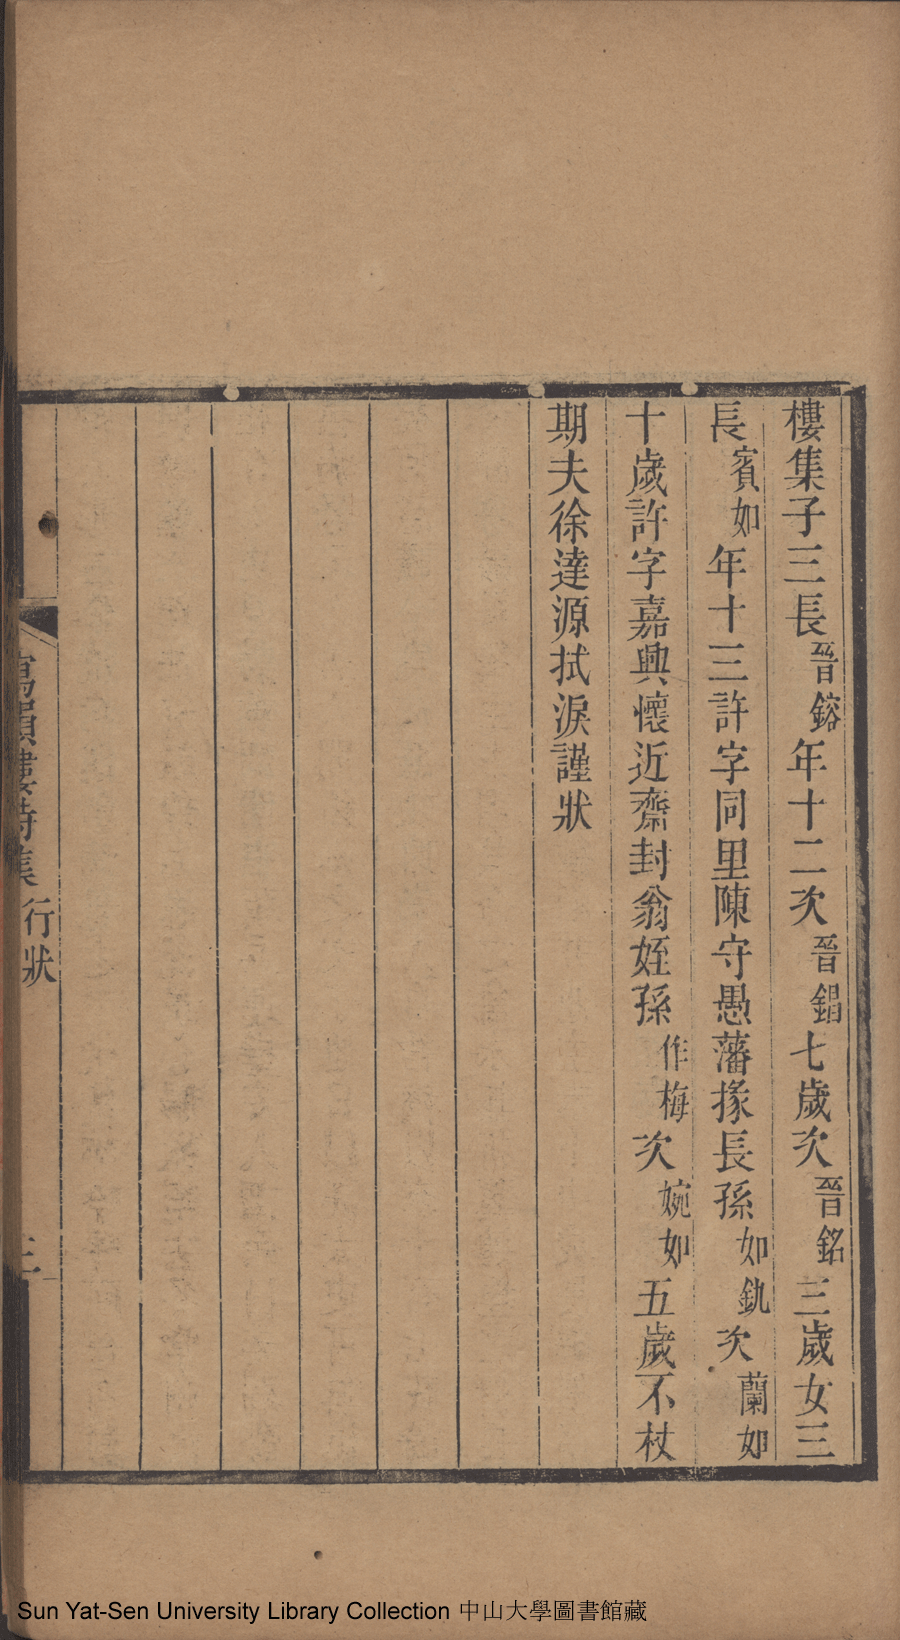 樓集子三長晉鎔年十二次晉錩七歲次晉銘三歲女三
長賓如年十三許字同里陳守愚藩掾長孫如釚次蘭如
十歲許字嘉興懷近齋封翁姪孫作梅次婉如五歲不杖
期夫徐達源拭淚謹狀
寫韻樓詩集 行狀
Sun Yat-Sen University Library Collection 中山大學圖書館藏